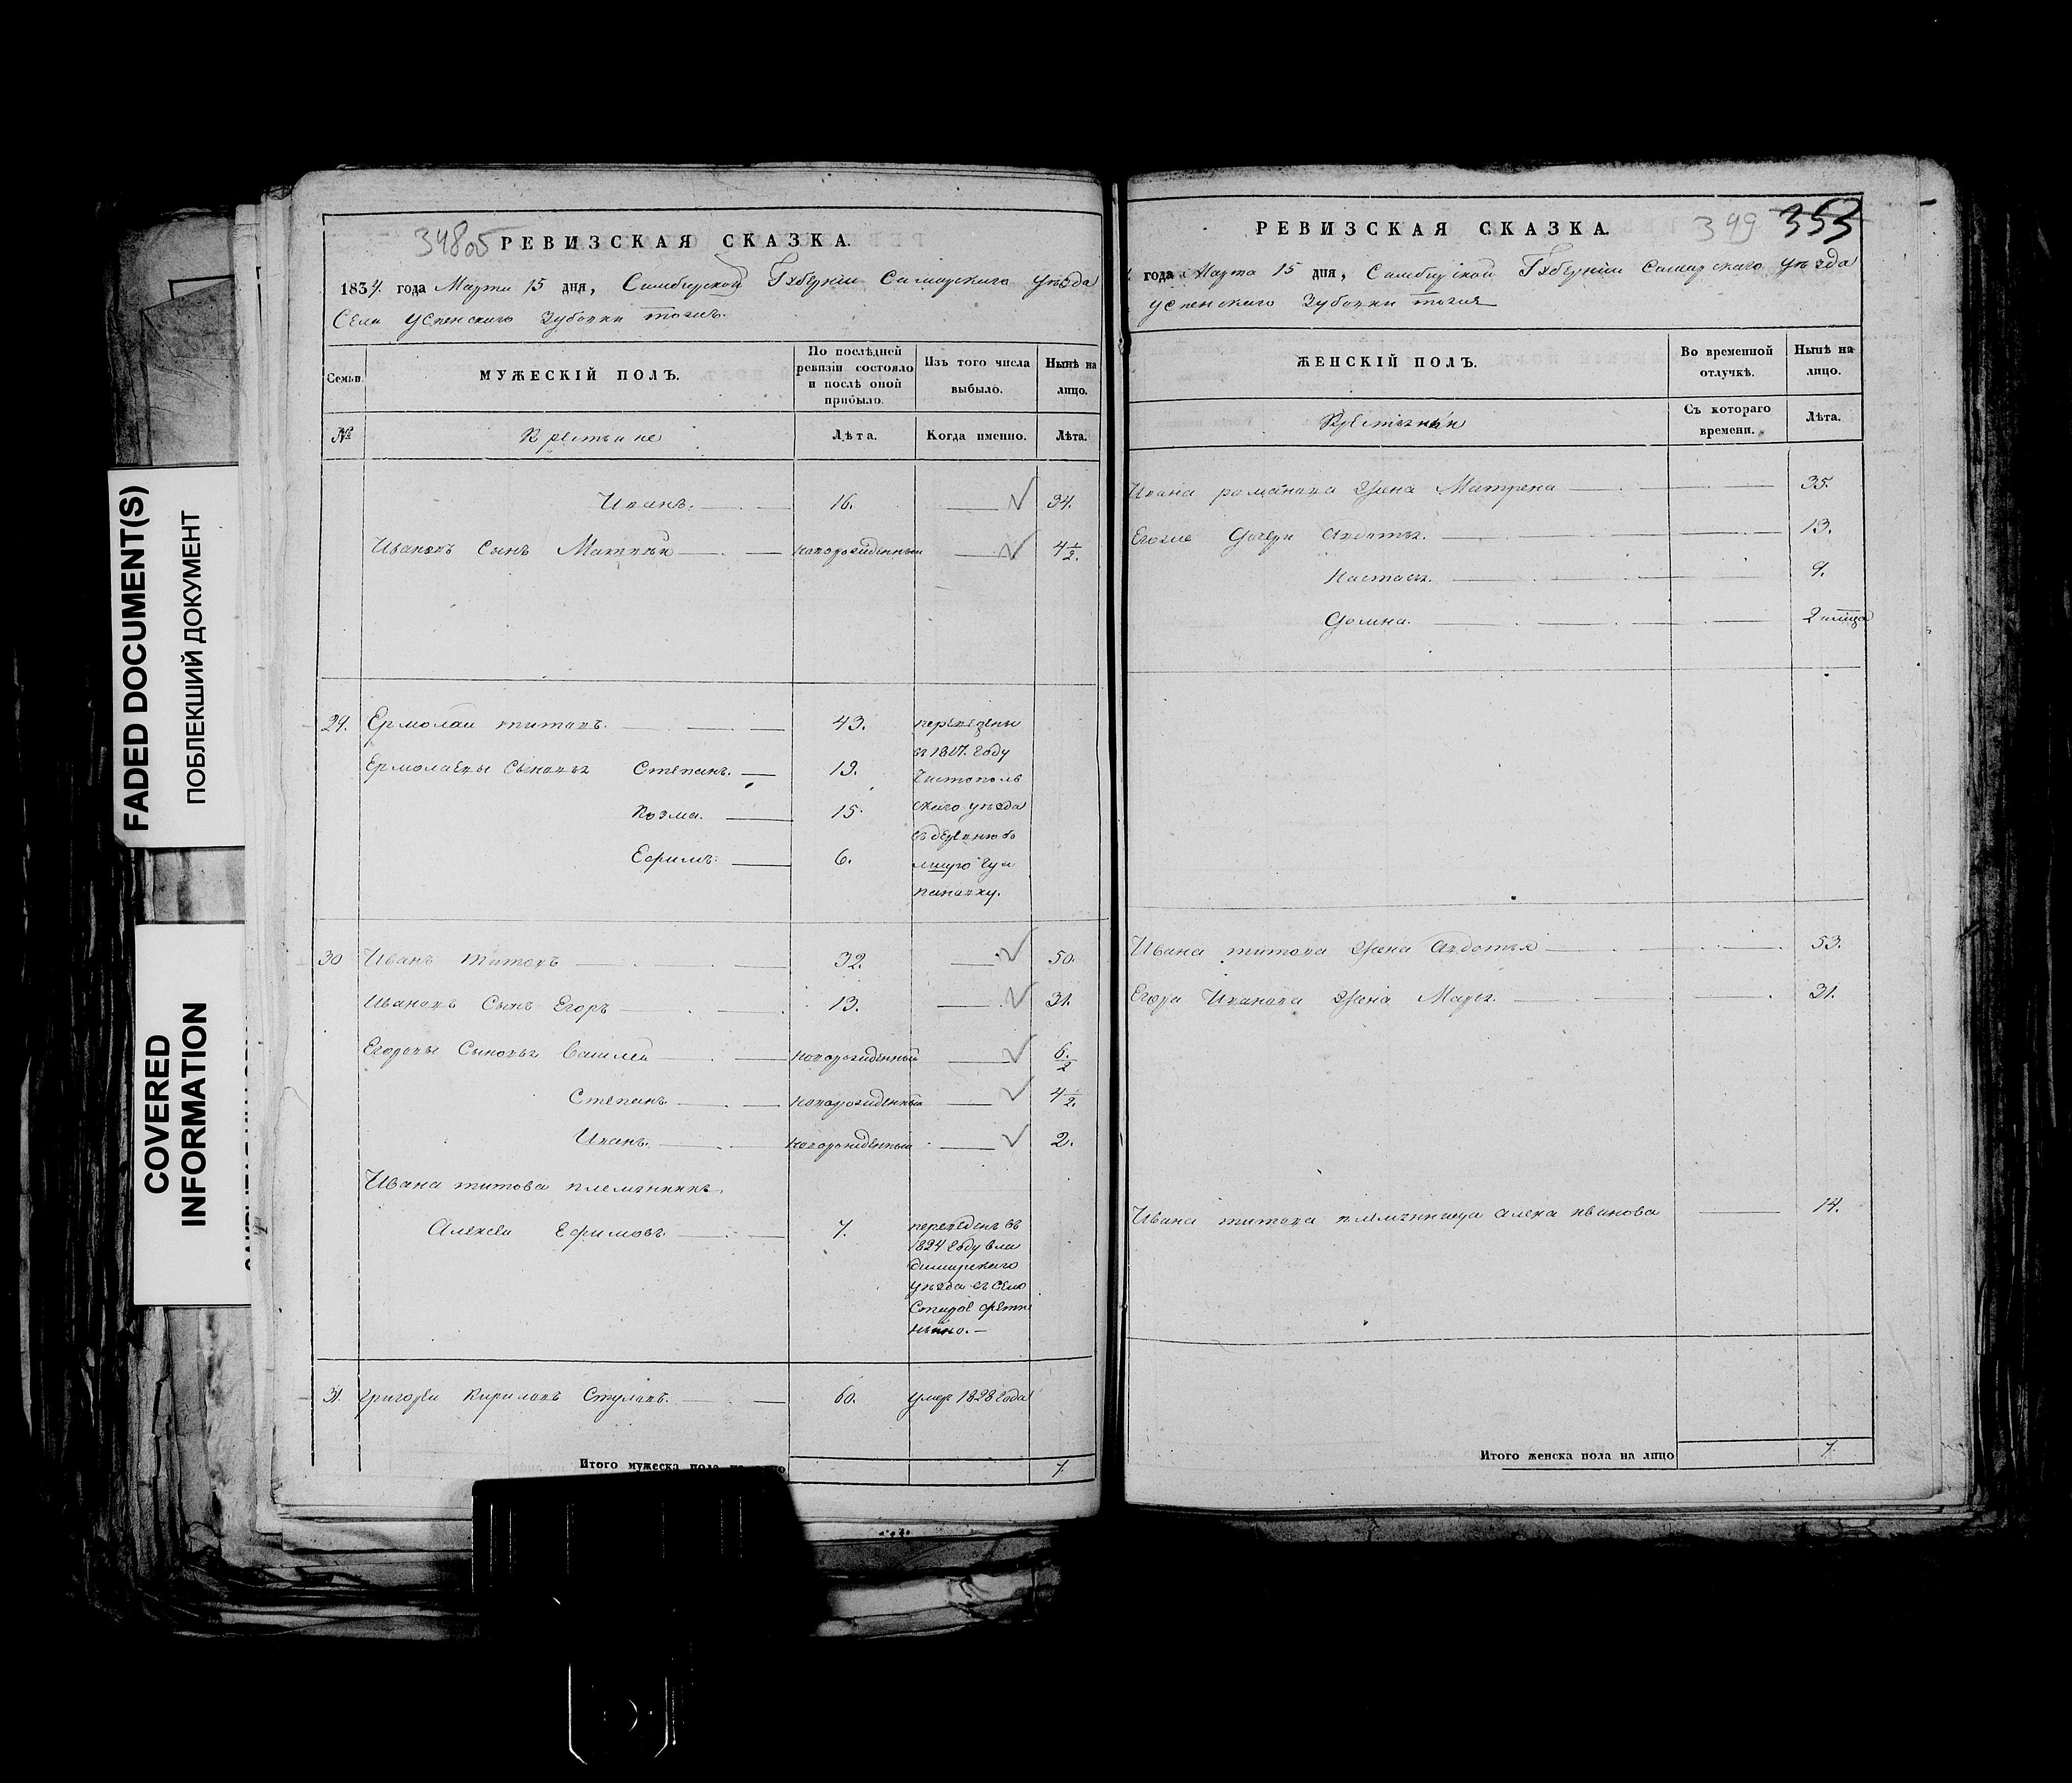 FADED DOCUMENT(S)
ПОБЛЕКШИЙ ДОКУМЕНТ
COVERED
INFORMATION
РЕВИЗСКАЯ СКАЗКА.
1834. года Марта 15 дня, Симбирской Губерніи Самарского уѣзда
Села Успенского Зубовки тожъ.
Семьи.
МУЖЕСКІЙ ПОЛЪ.
По послѣдней ревизіи состояло и послѣ оной прибыло.
Изъ того числа выбыло.
Нынѣ на лицо.
№
Крестьяне
Лѣта.
Когда именно.
Лѣта.
Иванъ. 16. 34.
Ивановъ Сынъ Матвѣй новорожденный 4 1/2.
29. Ермолаи титовъ. 43.
Ермолаевы Сыновья Степанъ. 19.
Козма. 15.
Ефимъ. 6.
переведены
въ 1817. году
Чистополь
скаго уѣзда
въ деревню
30 Иванъ титовъ 32. 50.
Ивановъ Сынъ Егоръ 13. 31.
Егоровы Сыновья Василей новорожденный 6. 1/2
Степанъ новорожденный 4 1/2.
Иванъ. новорожденный 2.
Ивана титова племянникъ.
Алексеи Ефимовъ. 7.
переведенъ въ
1824 году
уѣзда въ село
31. григореи Кириловъ 60. умер 1828 года
Итого мужеска пола 7.
РЕВИЗСКАЯ СКАЗКА.
349 353
года Марта 15 дня, Симбирской Губерніи Самарскаго уѣзда
успенскаго Зубовки тожъ
ЖЕНСКІЙ ПОЛЪ.
Во временной отлучкѣ.
Нынѣ на лицо.
Съ котораго времени.
Лѣта.
Ивана романова жена Матрена 35.
Егоже дочери авдотья. 13.
Настасья. 9.
Домна. 2 месяца
Ивана титова жена авдотья 53.
Егора Иванова жена Марья. 31.
Ивана титова племянница алена иванова 14.
Итого женска пола на лицо 7.